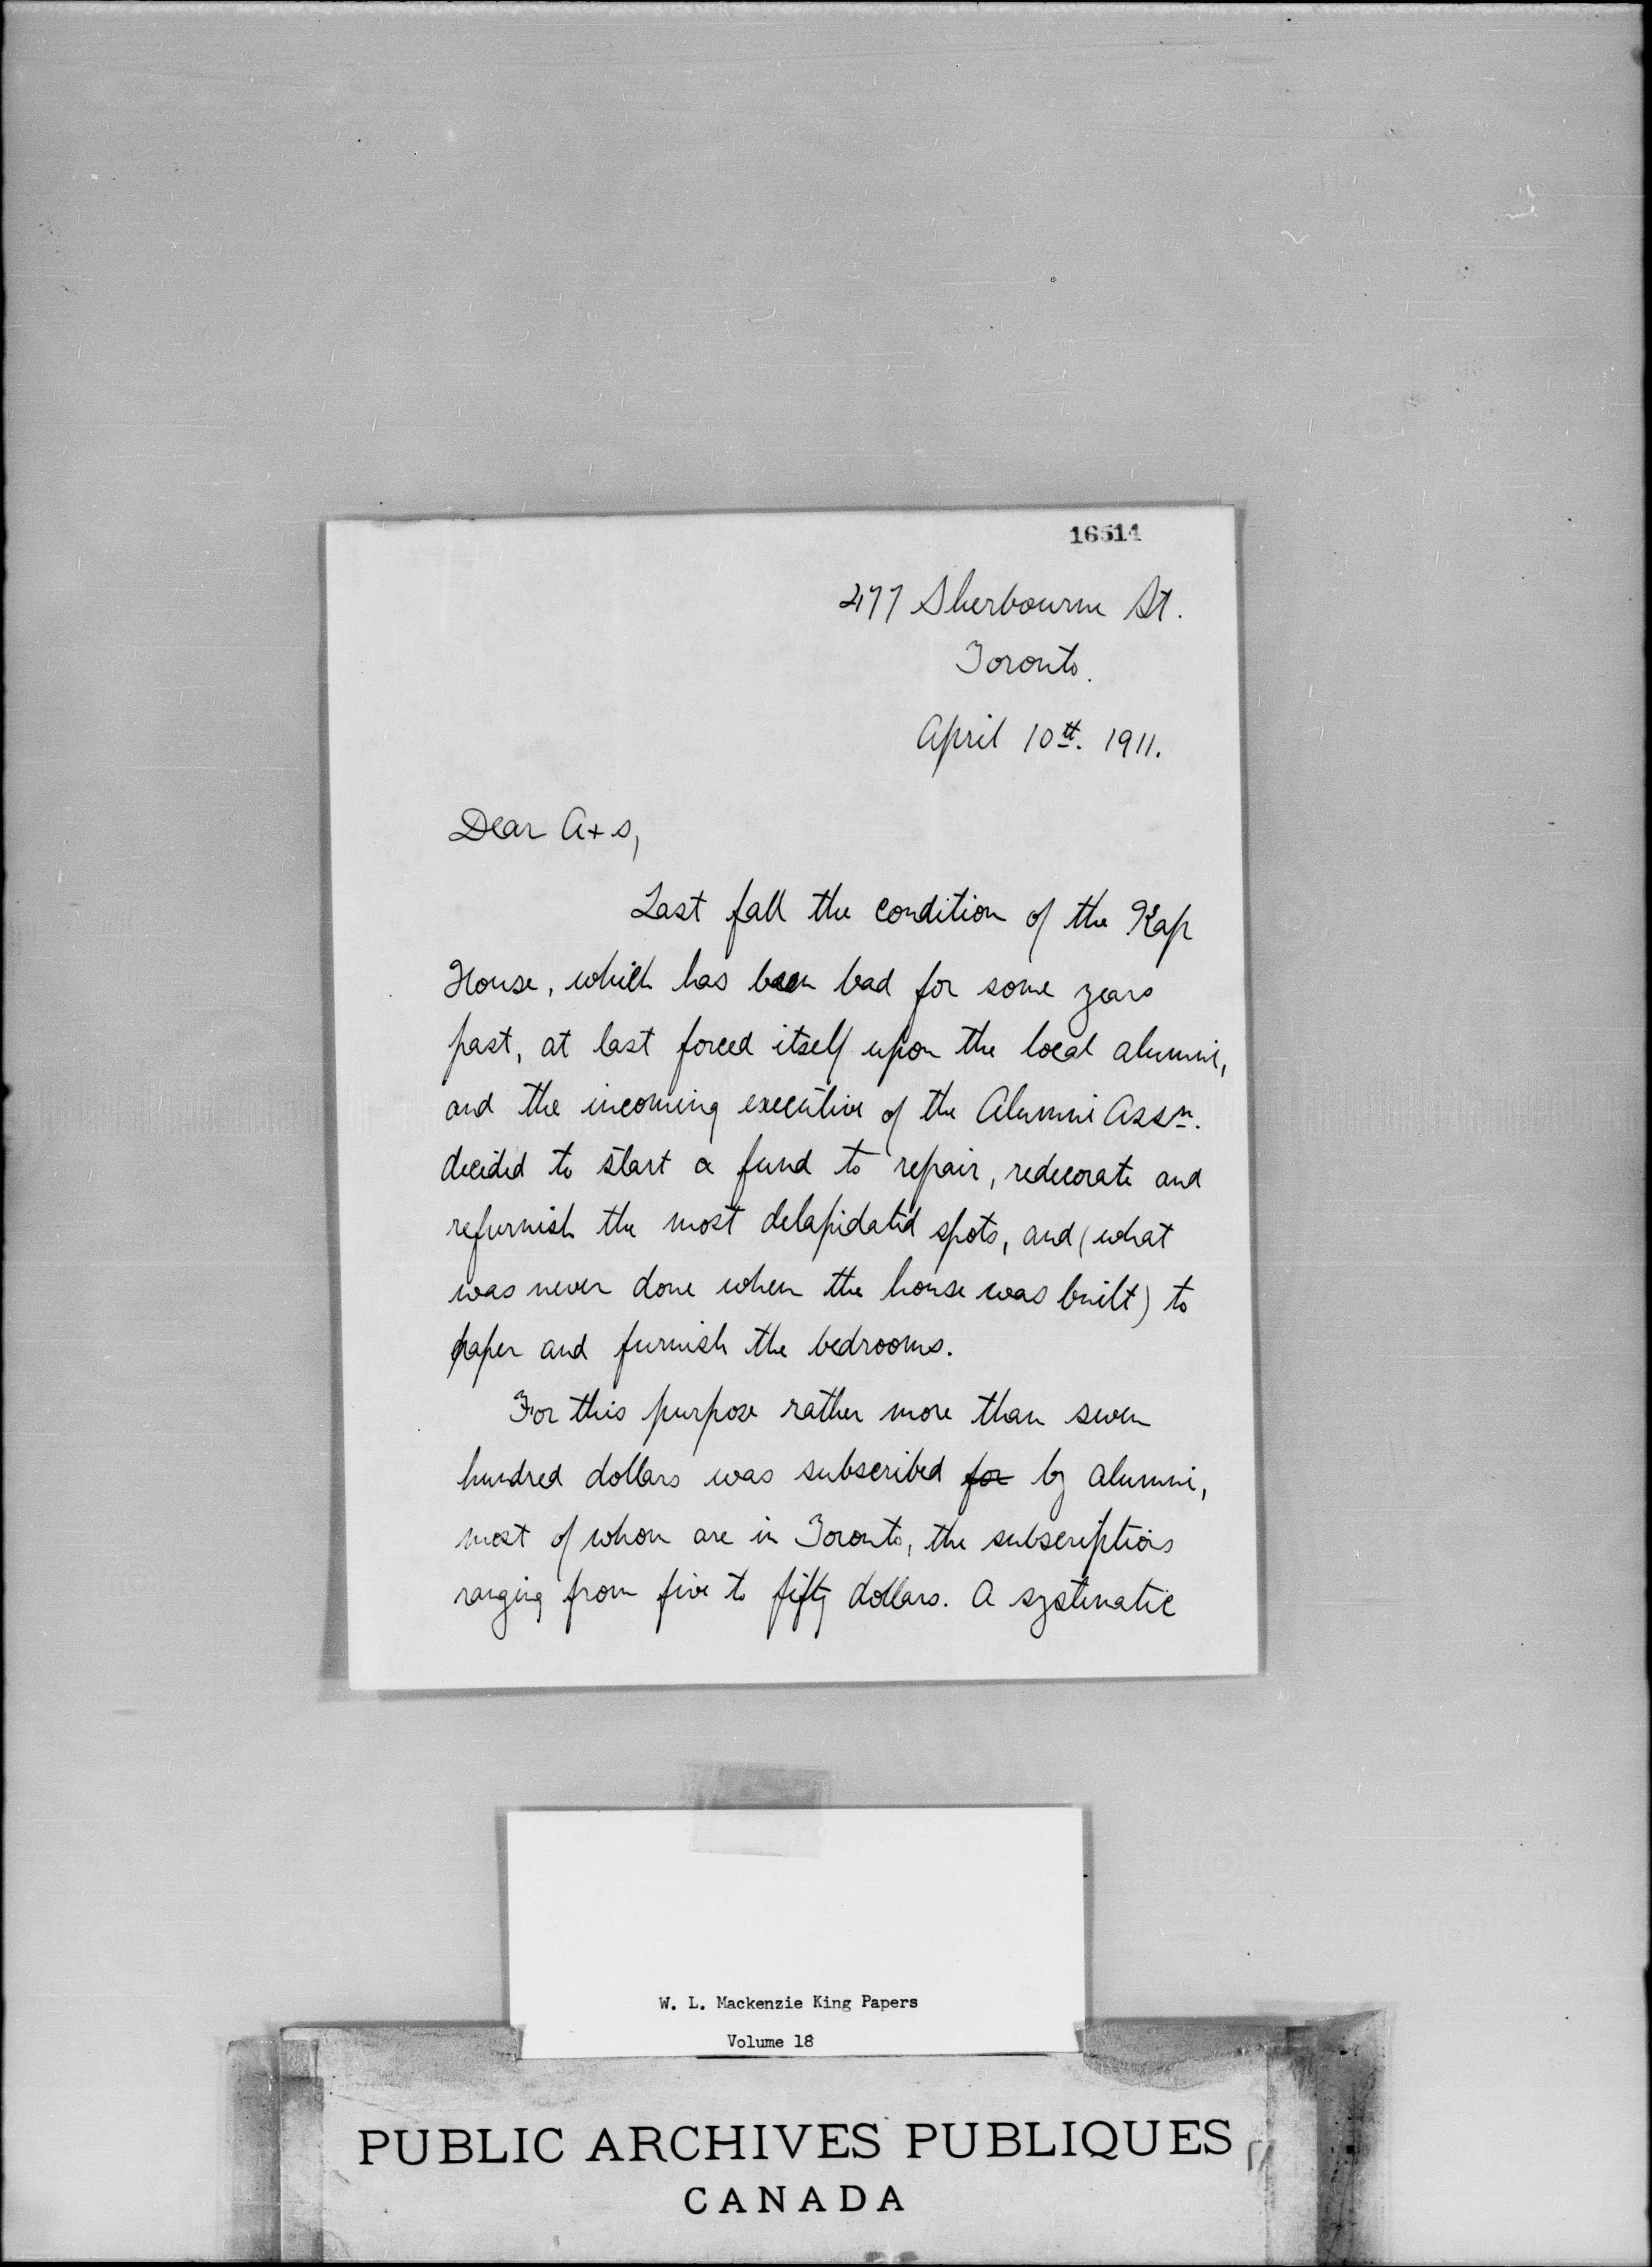 16514
477 Sherbourne St.
Toronto.
April 10th. 1911.
Dear A+s,
Last fall the condition of the Kap
House, which has been bad for some years
past, at last forced itself upon the local alumni,
and the incoming executive of the Alumni Assn.
decided to start a fund to repair, redecorate and
refurnish the most delapidated spots, and (what
was never done when the house was built) to
paper and furnish the bedrooms.
For this purpose rather more than seven
hundred dollars was subscribed for by alumni,
most of whom are in Toronto, the subscriptions
ranging from five to fifty dollars. A systematic
W. L. Mackenzie King Papers
Volume 18
PUBLIC ARCHIVES PUBLIQUES
CANADA